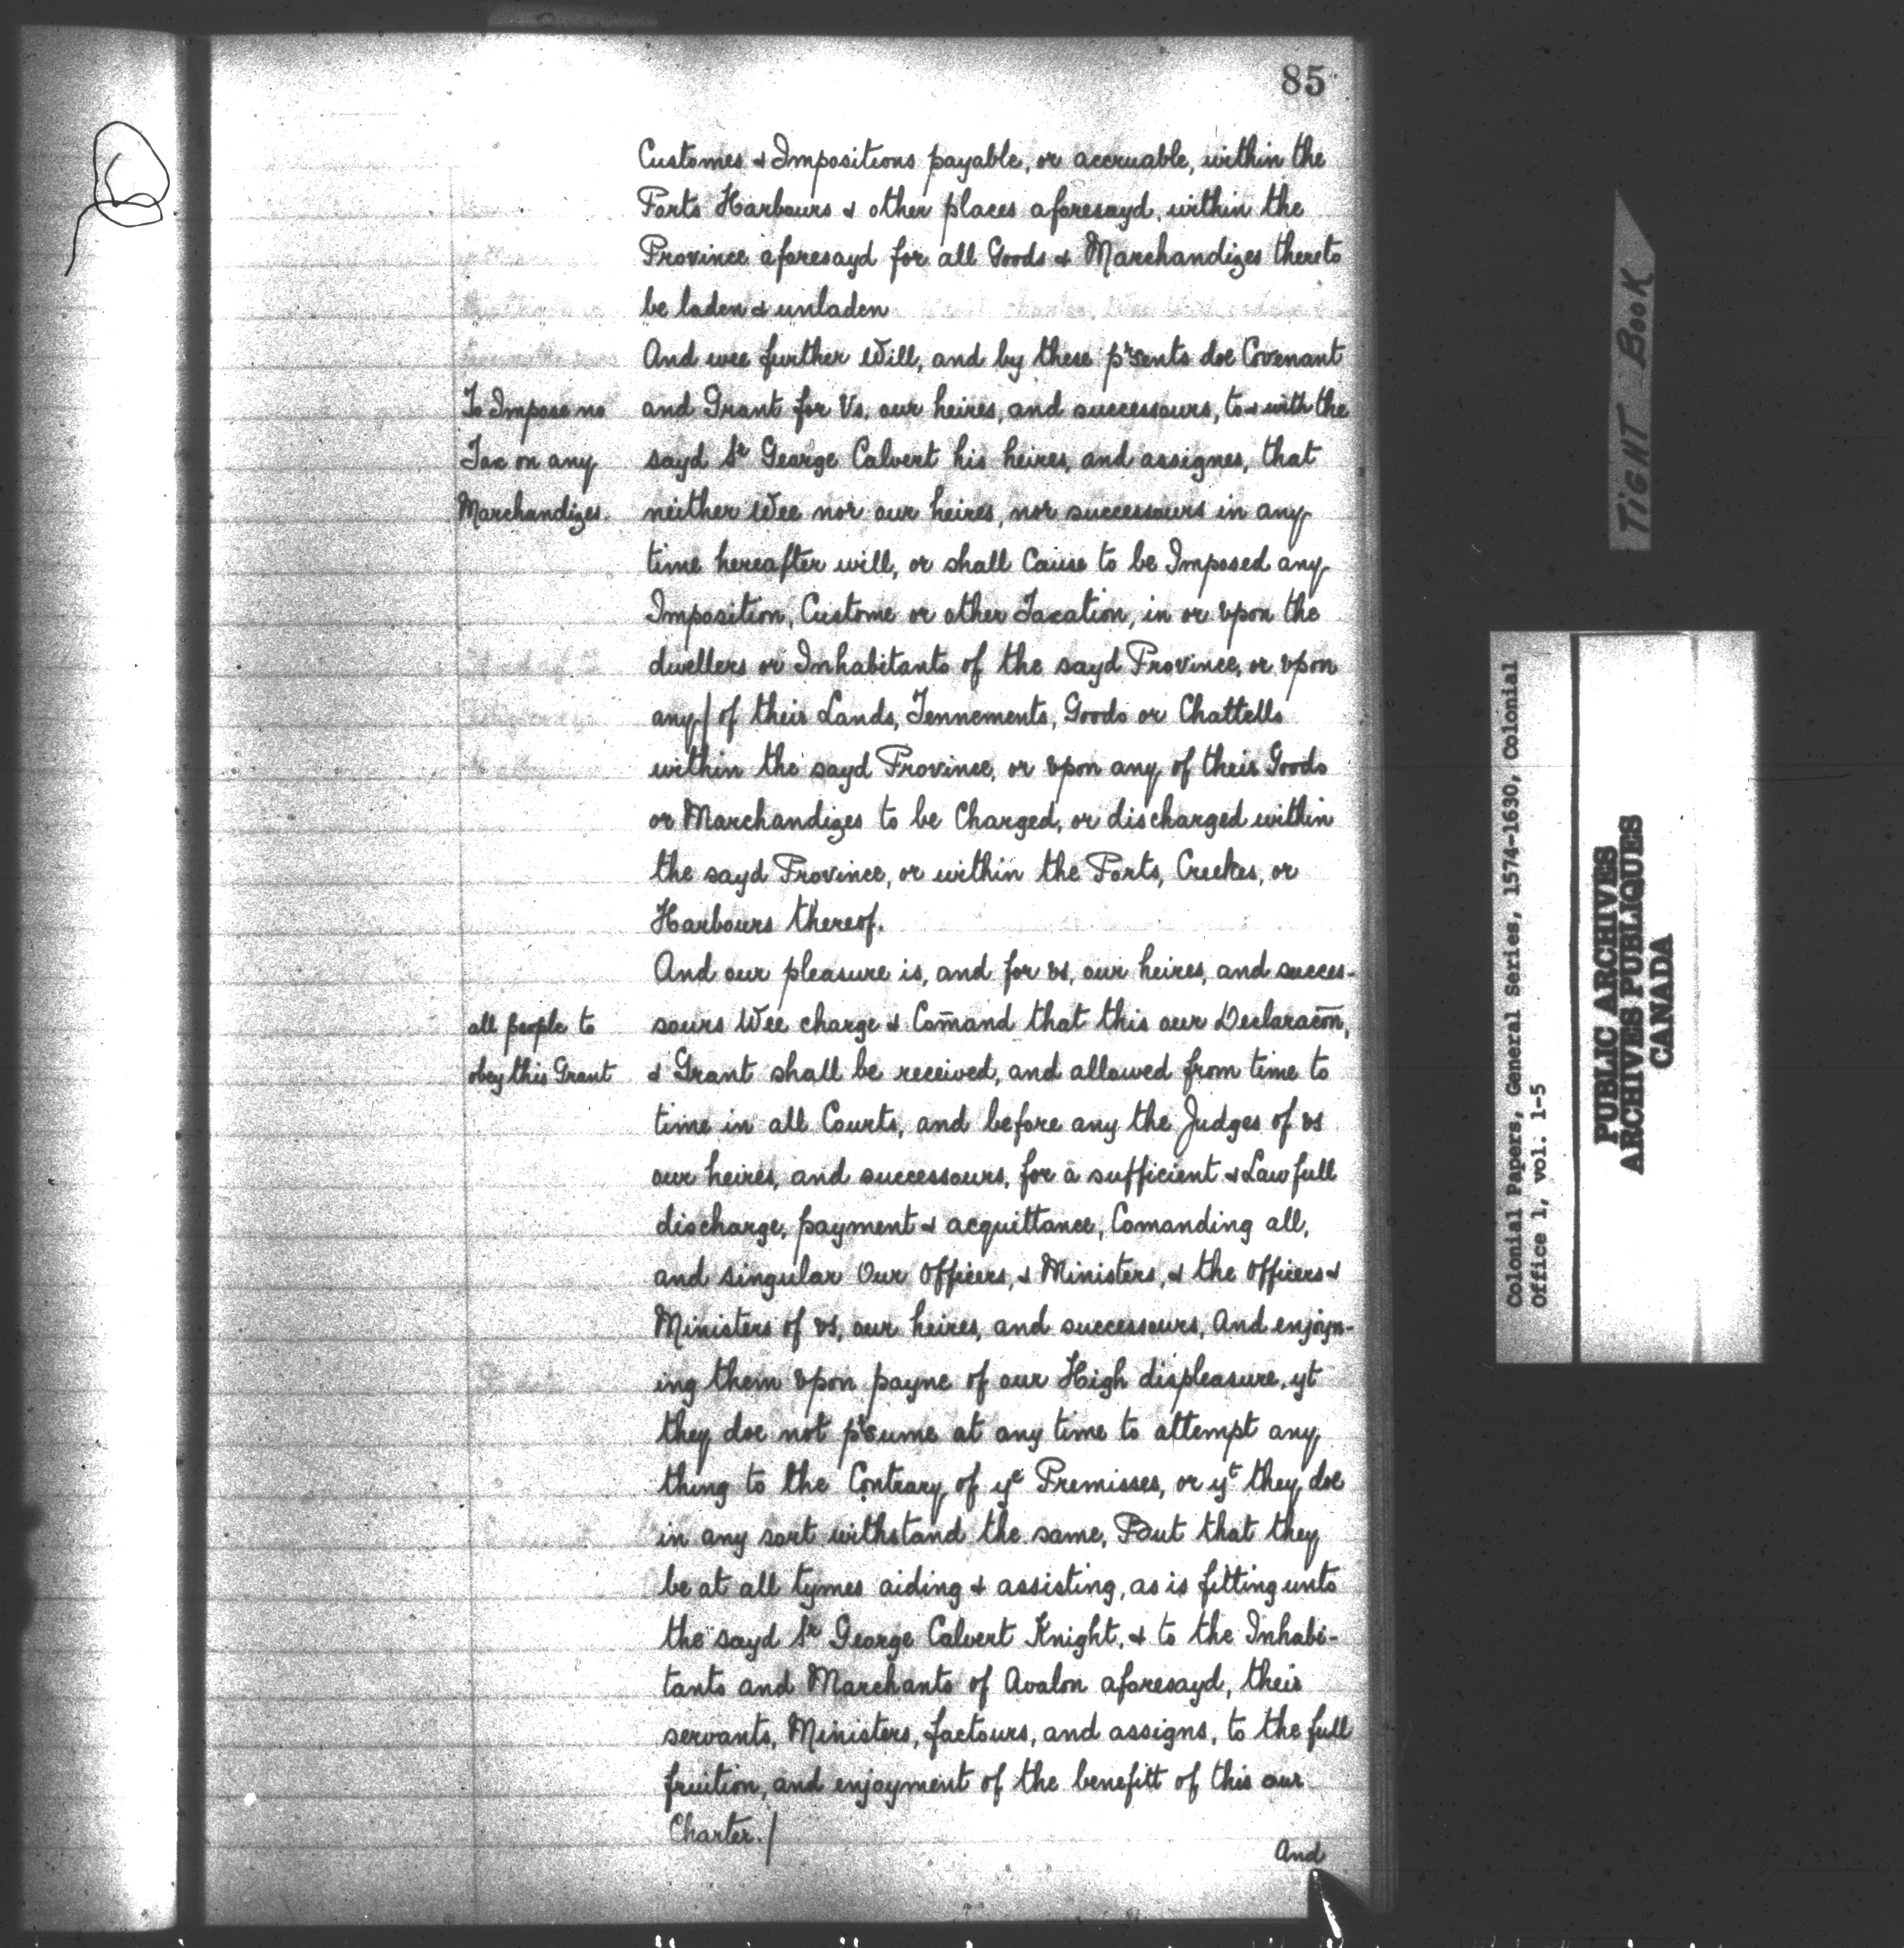 85
Customes & Impositions payable, or accruable, within the
Ports Harbours & other places aforesayd, within the
Province aforesayd for all Goods & Marchandizes thereto
be laden & unladen
And wee further Will, and by these p^rsents doe Covenant
To Impose no
Tax on any
Marchandizes.
and Grant for Vs, our heires, and successours, to & with the
sayd S^r George Calvert his heires, and assignes, that
neither Wee nor our heires, nor successours in any
time hereafter will, or shall Cause to be Imposed any
Imposition, Custome or other Taxation, in or vpon the
dwellers or Inhabitants of the sayd Province, or vpon
any/ of their Lands, Tennements, Goods or Chattells
within the sayd Province, or vpon any of their Goods
or Marchandizes to be Charged, or discharged within
the sayd Province, or within the Ports, Creekes, or
Harbours thereof.
And our pleasure is, and for vs, our heires, and succes-
all people to
obey this Grant
sours Wee charge & Com̄and that this our Declaracōn,
& Grant shall be received, and allowed from time to
time in all Courts, and before any the Judges of vs
our heires, and successours, for a sufficient & Lawfull
discharge, payment & acquittance, Comanding all,
and singular Our Officers, & Ministers, & the Officers &
Ministers of vs, our heires, and successours, And enjoyn-
ing them vpon payne of our High displeasure, yt
they doe not p^rsume at any time to attempt any
thing to the Contrary of y^e Premisses, or y^t they doe
in any sort withstand the same, But that they
be at all tymes aiding & assisting, as is fitting unto
the sayd S^r George Calvert Knight, & to the Inhabi-
tants and Marchants of Avalon aforesayd, their
servants, Ministers, factours, and assigns, to the full
fruition, and enjoyment of the benefitt of this our
Charter./
And
TIGHT BOOK
Colonial Papers, General Series, 1574-1630, Colonial
Office 1, vol. 1-5
PUBLIC ARCHIVES
ARCHIVES PUBLIQUES
CANADA